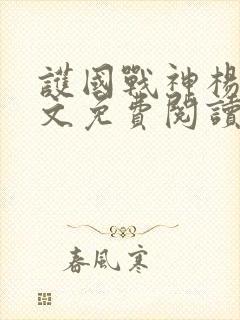 護國戰神楊
文免費閱讀
春風寒